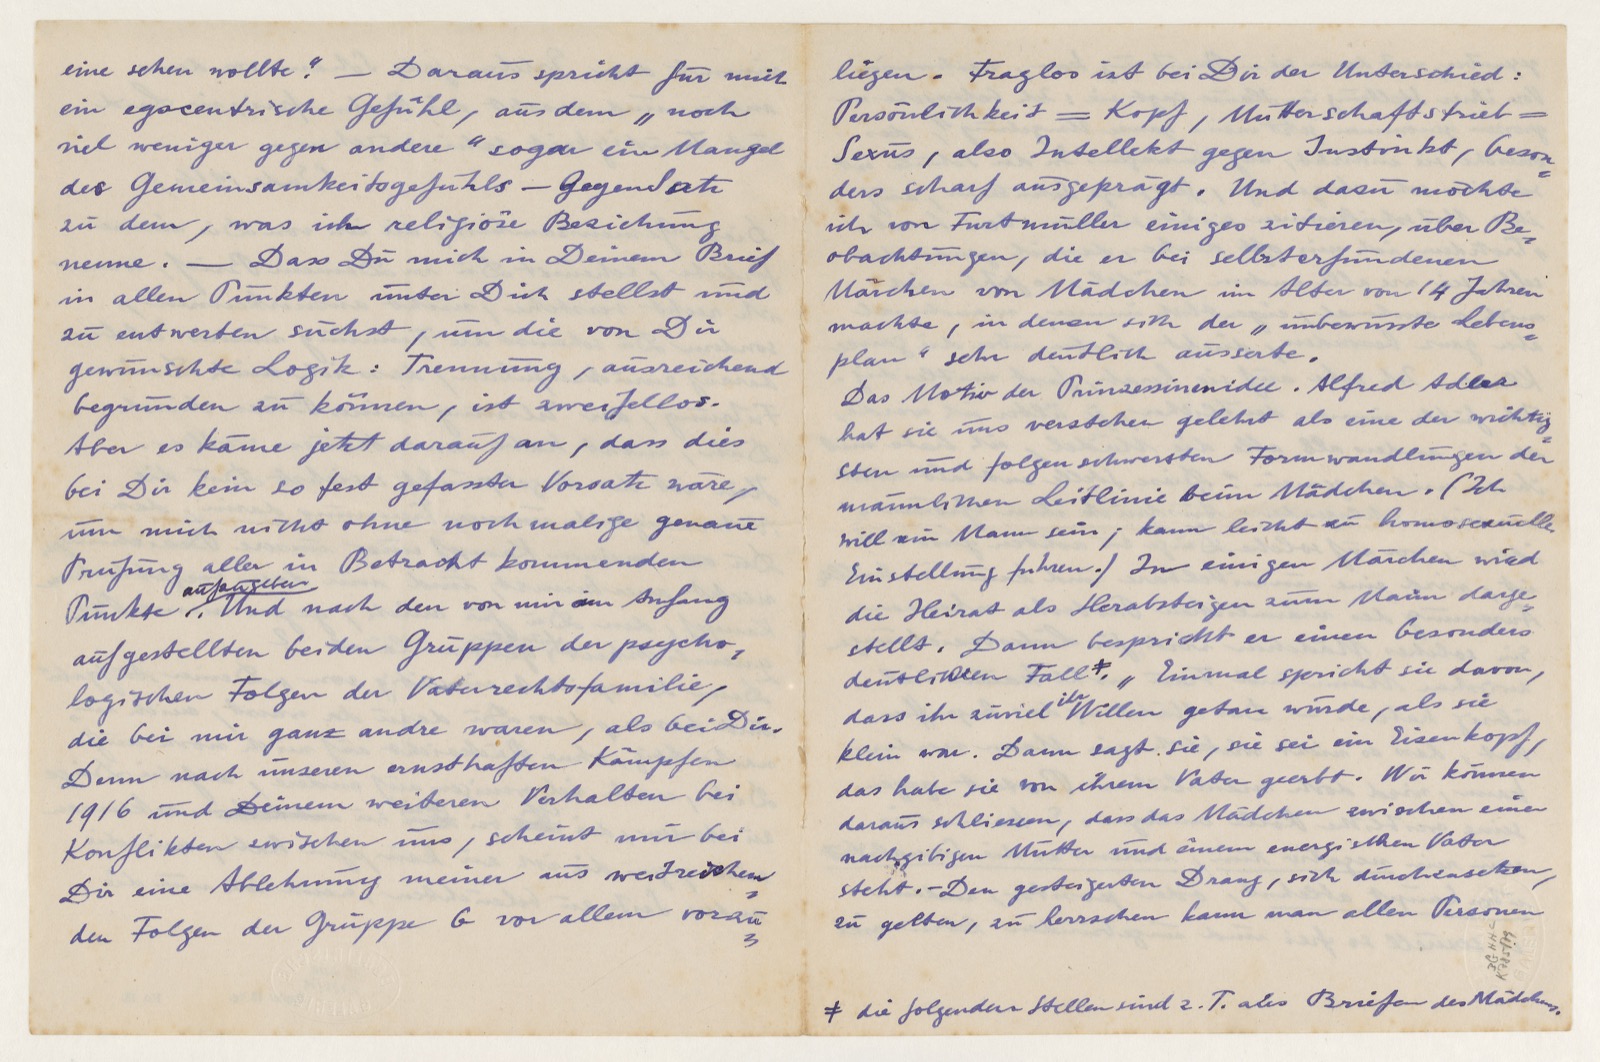 eine sehen wollte." — Daraus spricht für mich
ein egocentrische Gefühl, aus dem „noch
viel weniger gegen andere" sogar ein Mangel
des Gemeinsamkeitsgefühls — Gegensatz
zu dem, was ich religiöse Beziehung
nenne. — Dass Du mich in Deinem Brief
in allen Punkten unter Dich stellst und
zu entwerten suchst, um die von Dir
gewünschte Logik: Trennung, ausreichend
begründen zu können, ist zweifellos.
Aber es käme jetzt darauf an, dass dies
bei Dir kein so fest gefasster Vorsatz wäre,
um mich nicht ohne nochmalige genaue
Prüfung aller in Betracht kommenden
Punkte aufzugeben. Und nach den von mir am Anfang
aufgestellten beiden Gruppen der psycho-
logischen Folgen der Vaterrechtsfamilie,
die bei mir ganz andre waren, als bei Dir.
Denn nach unseren ernsthaften Kämpfen
1916 und Deinem weiteren Verhalten bei
Konflikten zwischen uns, scheint mir bei
Dir eine Ablehnung meiner aus weitreichen-
den Folgen der Gruppe 6 vor allem vorzu-
liegen. Fraglos ist bei Dir der Unterschied:
Persönlichkeit = Kopf, Mutterschaftstrieb =
Sexus, also Intellekt gegen Instinkt, beson-
ders scharf ausgeprägt. Und dazu möchte
ich von Furtmüller einiges zitieren, über Be-
obachtungen, die er bei selbsterfundenen
Märchen von Mädchen im Alter von 14 Jahren
machte, in denen sich der „unbewusste Lebens-
plan" sehr deutlich äusserte.
Das Motiv der Prinzessinenidee. Alfred Adler
hat sie uns verstehen gelehrt als eine der wichtig-
sten und folgenschwersten Formwandlungen der
männlichen Leitlinie beim Mädchen. (Ich
will ein Mann sein; kann leicht zu homosexueller
Einstellung führen.) In einigen Märchen wird
die Heirat als Herabsteigen zum Mann darge-
stellt. Dann bespricht er einen besonders
deutlichen Fall ‡. „Einmal spricht sie davon,
dass ihr zuviel ihr Willen getan wurde, als sie
klein war. Dann sagt sie, sie sei ein Eisenkopf,
das habe sie von ihrem Vater geerbt. Wir können
daraus schliessen, dass das Mädchen zwischen einer
nachgibigen Mutter und einem energischen Vater
steht. – Den gesteigerten Drang, sich durchzusetzen,
zu gelten, zu herrschen kann man allen Personen
‡ die folgenden Stellen sind z. T. aus Briefen des Mädchens.